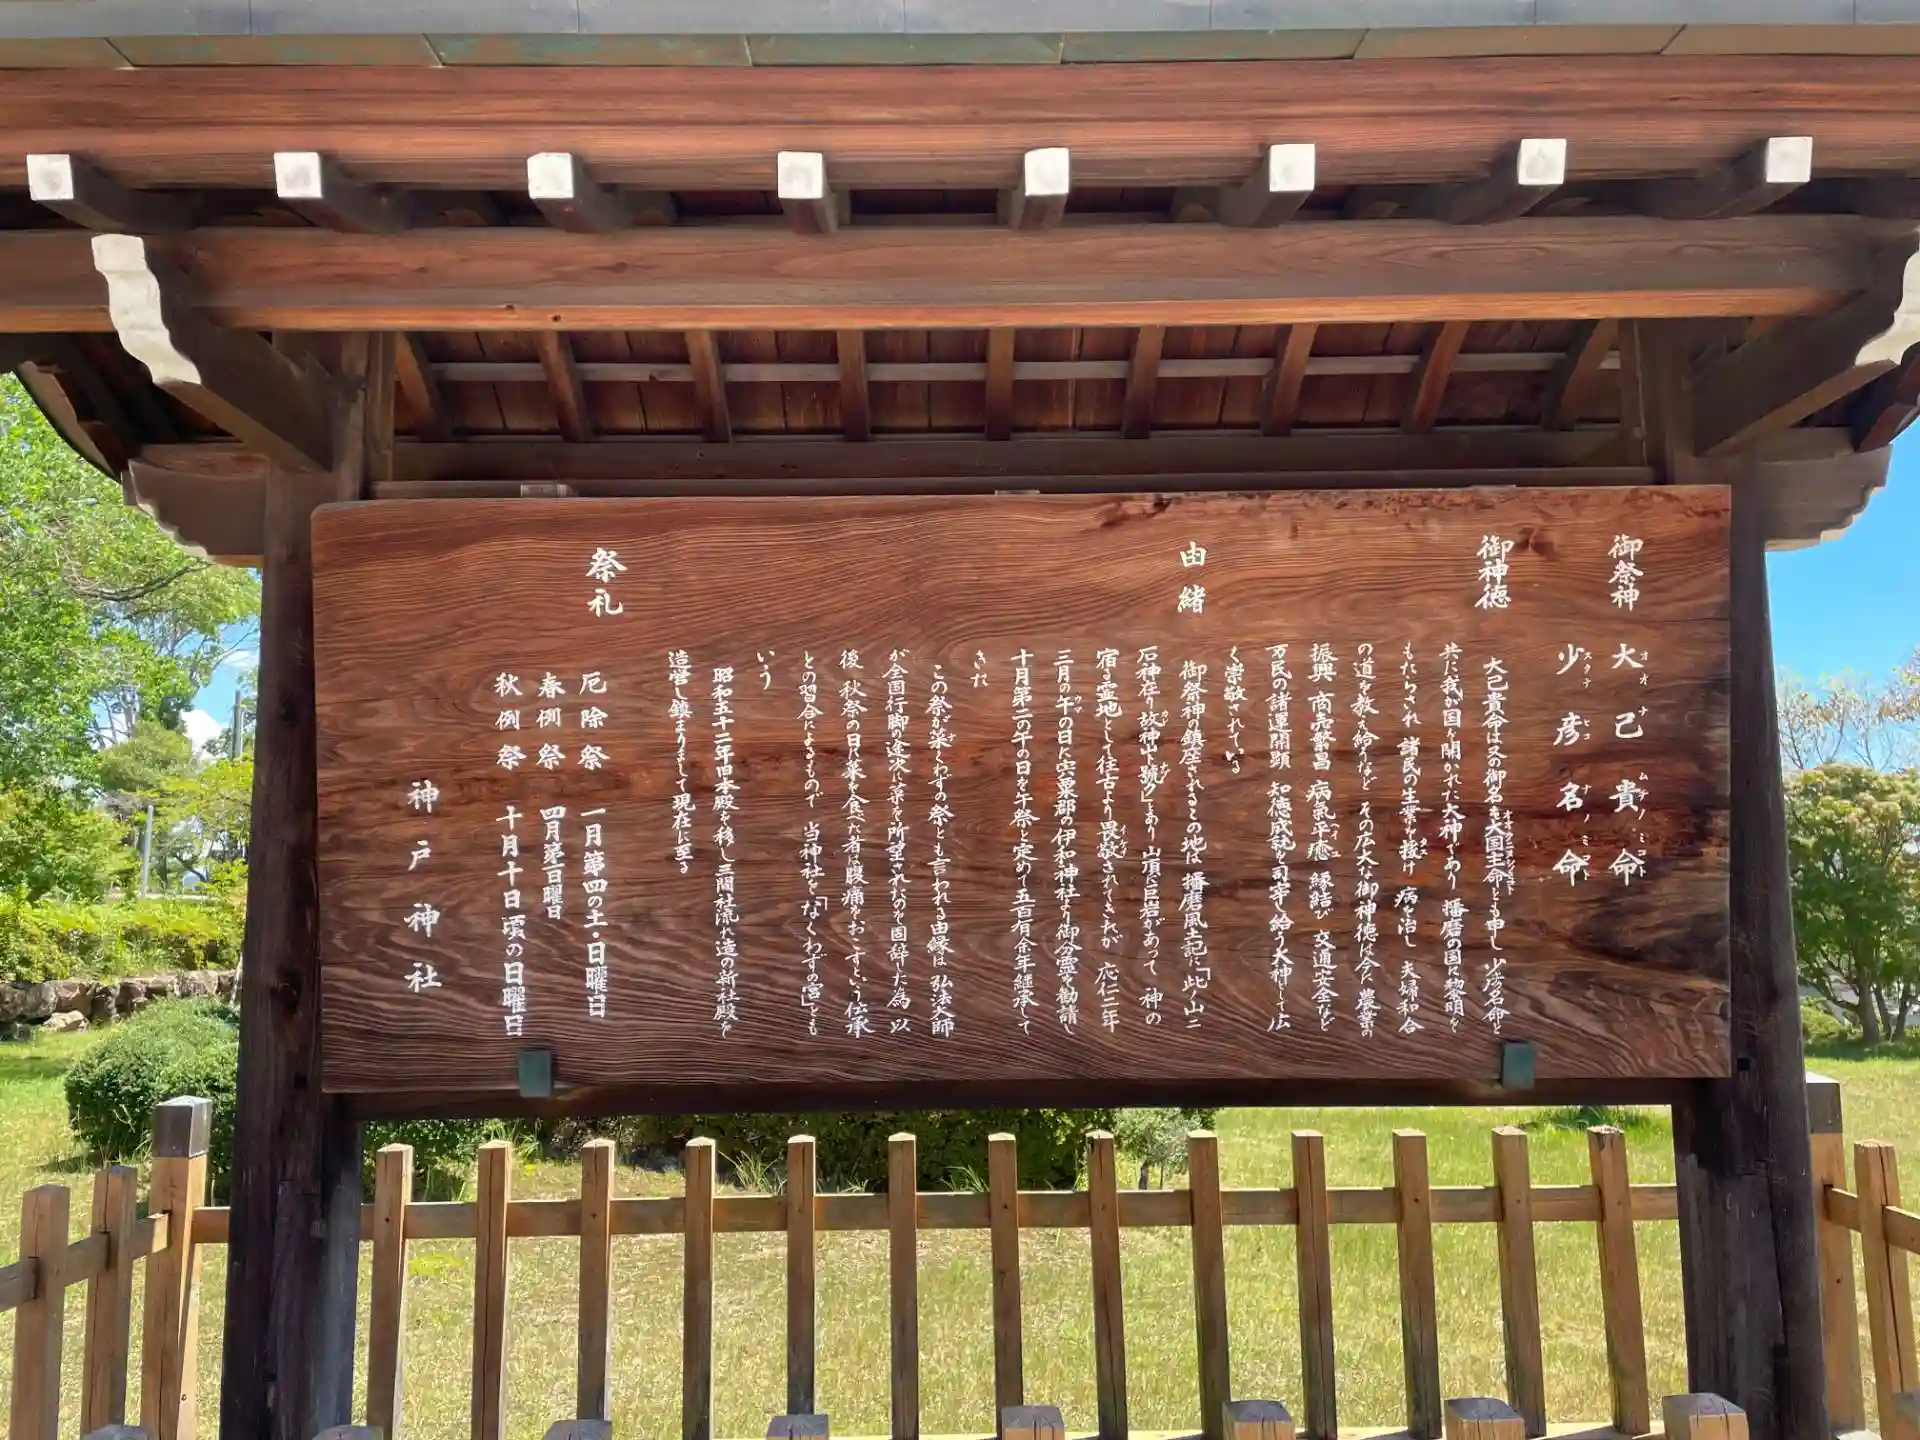 御祭神
大己貴命
オオナムチノミコト
少彦名命
スクナヒコナノミコト
御神徳
大己貴命は又の御名を大国主命とも申し 少彦名命と
共に我が国を開かれた大神であり 播磨の国に黎明を
もたらされ 諸民の生業を授け 病を治し 夫婦和合
の道を教え給うなど その広大な御神徳は今に 農業の
振興 商売繁昌 病氣平癒 縁結び 交通安全など
万民の諸運開顕 知徳成就を司宰し給う大神として広
く崇敬されている
由緒
御祭神の鎮座されるこの地は 播磨風土記に「此ノ山ニ
石神在り 故神山ト號ク」とあり 山頂に巨岩があって 神の
宿る霊地として往古より畏敬されてきたが 応仁二年
三月の午の日に宍粟郡の伊和神社より御分霊を勧請し
十月第二の午の日を午祭と定めて五百有余年継承して
きた
この祭が菜くわずの祭とも言われる由縁は 弘法大師
が全国行脚の途次に菜を所望されたのを固辞した為 以
後 秋祭の日に菜を食べた者は腹痛をおこすという伝承
との習合によるもので 当神社を「なくわずの宮」とも
いう
昭和五十二年旧本殿を移し三間社流れ造の新社殿を
造営し鎮まりまして現在に至る
祭礼
厄除祭 一月第四の土・日曜日
春例祭 四月第一日曜日
秋例祭 十月十日頃の日曜日
神戸神社